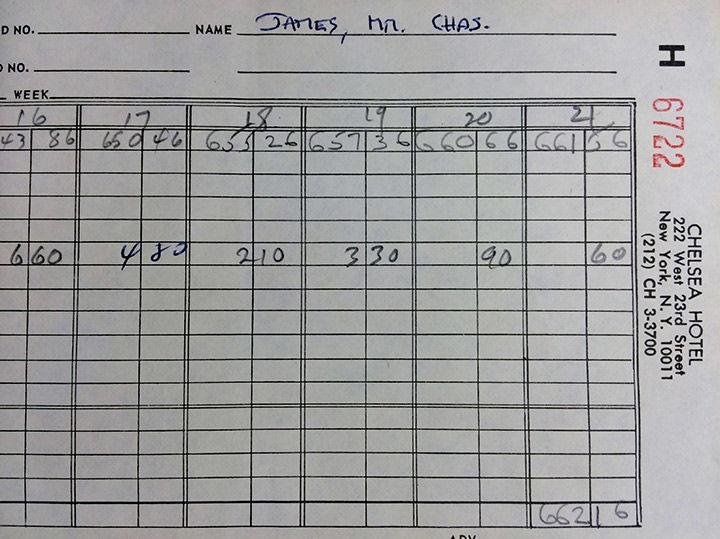 D NO. NAME JAMES, MR. CHAS.
D NO.
WEEK
16 17 18 19 20 21
43 86 650 46 655 26 657 36 660 66 661 56
6 60 4 80 2 10 3 30 90 60
662 16
H 6722
CHELSEA HOTEL
222 West 23rd Street
New York, N. Y. 10011
(212) CH 3-3700